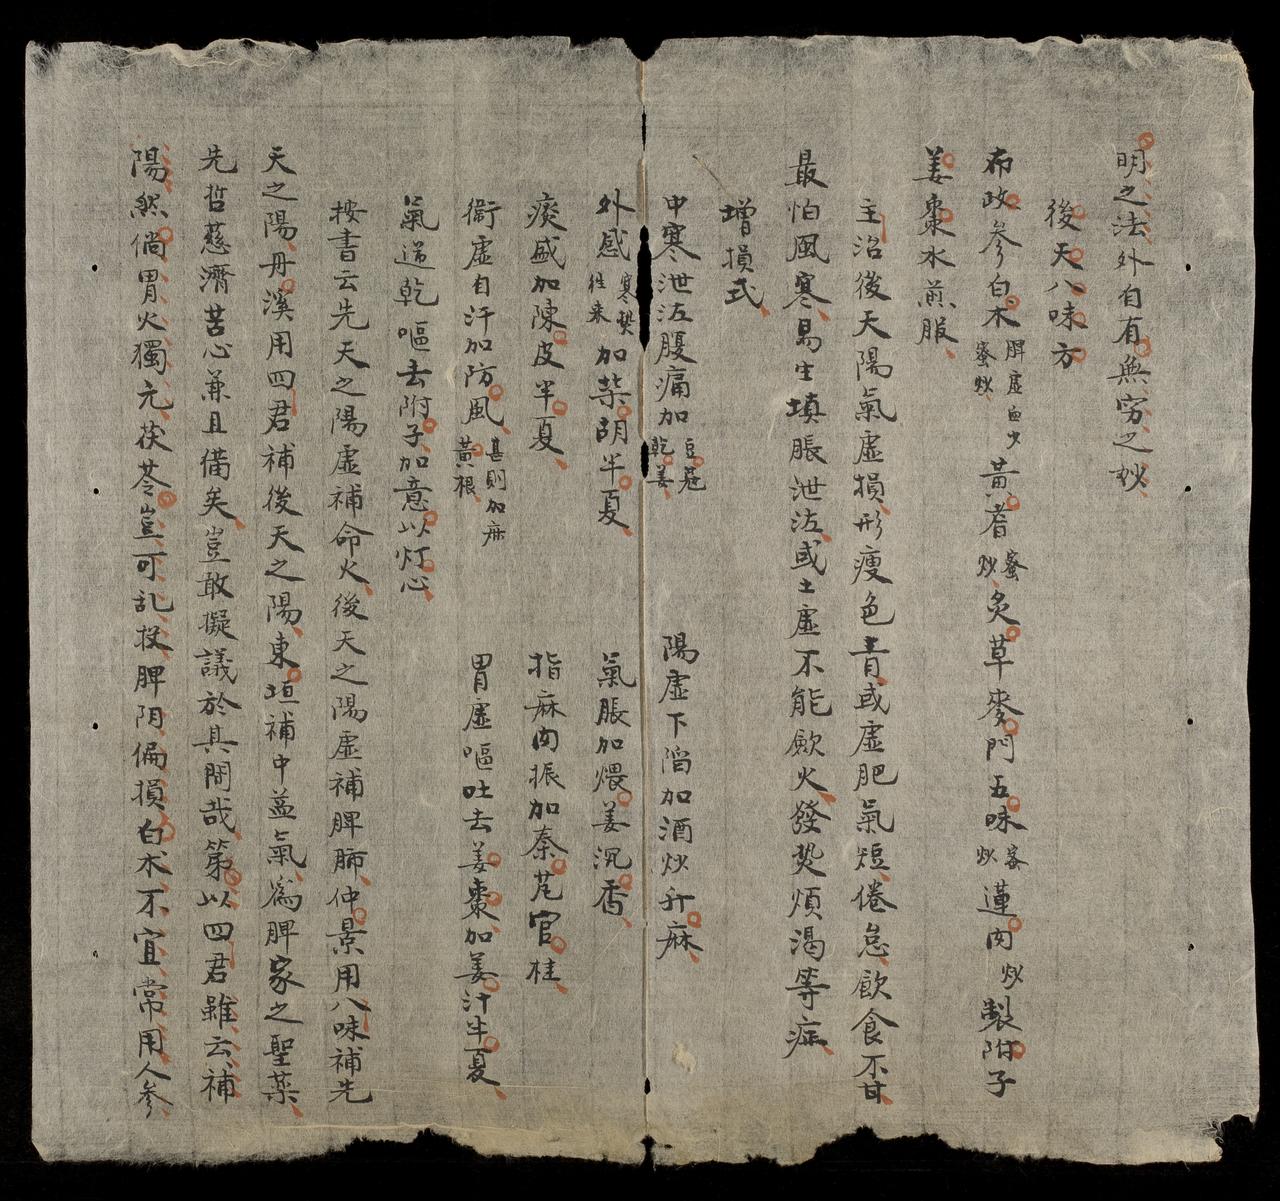 明之法外自有無窮之妙
後天八味方
布政參白朮脾虛血少蜜炒黃耆蜜炒炙草麥門五味蜜炒蓮肉炒製附子
姜棗水煎服
主治後天陽氣虛損形瘦色青或虛肥氣短倦怠飲食不甘
最怕風寒易生填脹泄泻或土虛不能歛火發熱煩渴等症
增損式
中寒泄泻腹痛加豆蔻乾姜 陽虛下陷加酒炒升麻
外感寒熱往來加柴胡半夏 氣脹加煨姜沉香
痰盛加陳皮半夏 指麻肉振加秦艽官桂
衛虛自汗加防風甚則加麻黃根 胃虛嘔吐去姜棗加姜汁半夏
氣逆乾嘔去附子加意以灯心
按書云先天之陽虛補命火後天之陽虛補脾肺仲景用八味補先
天之陽丹溪用四君補後天之陽東垣補中益氣為脾家之聖藥
先哲慈濟苦心兼且備矣豈敢擬議於其間哉第以四君雖云補
陽然倘胃火獨亢茯苓豈可乱投脾阴偏損白朮不宜常用人參